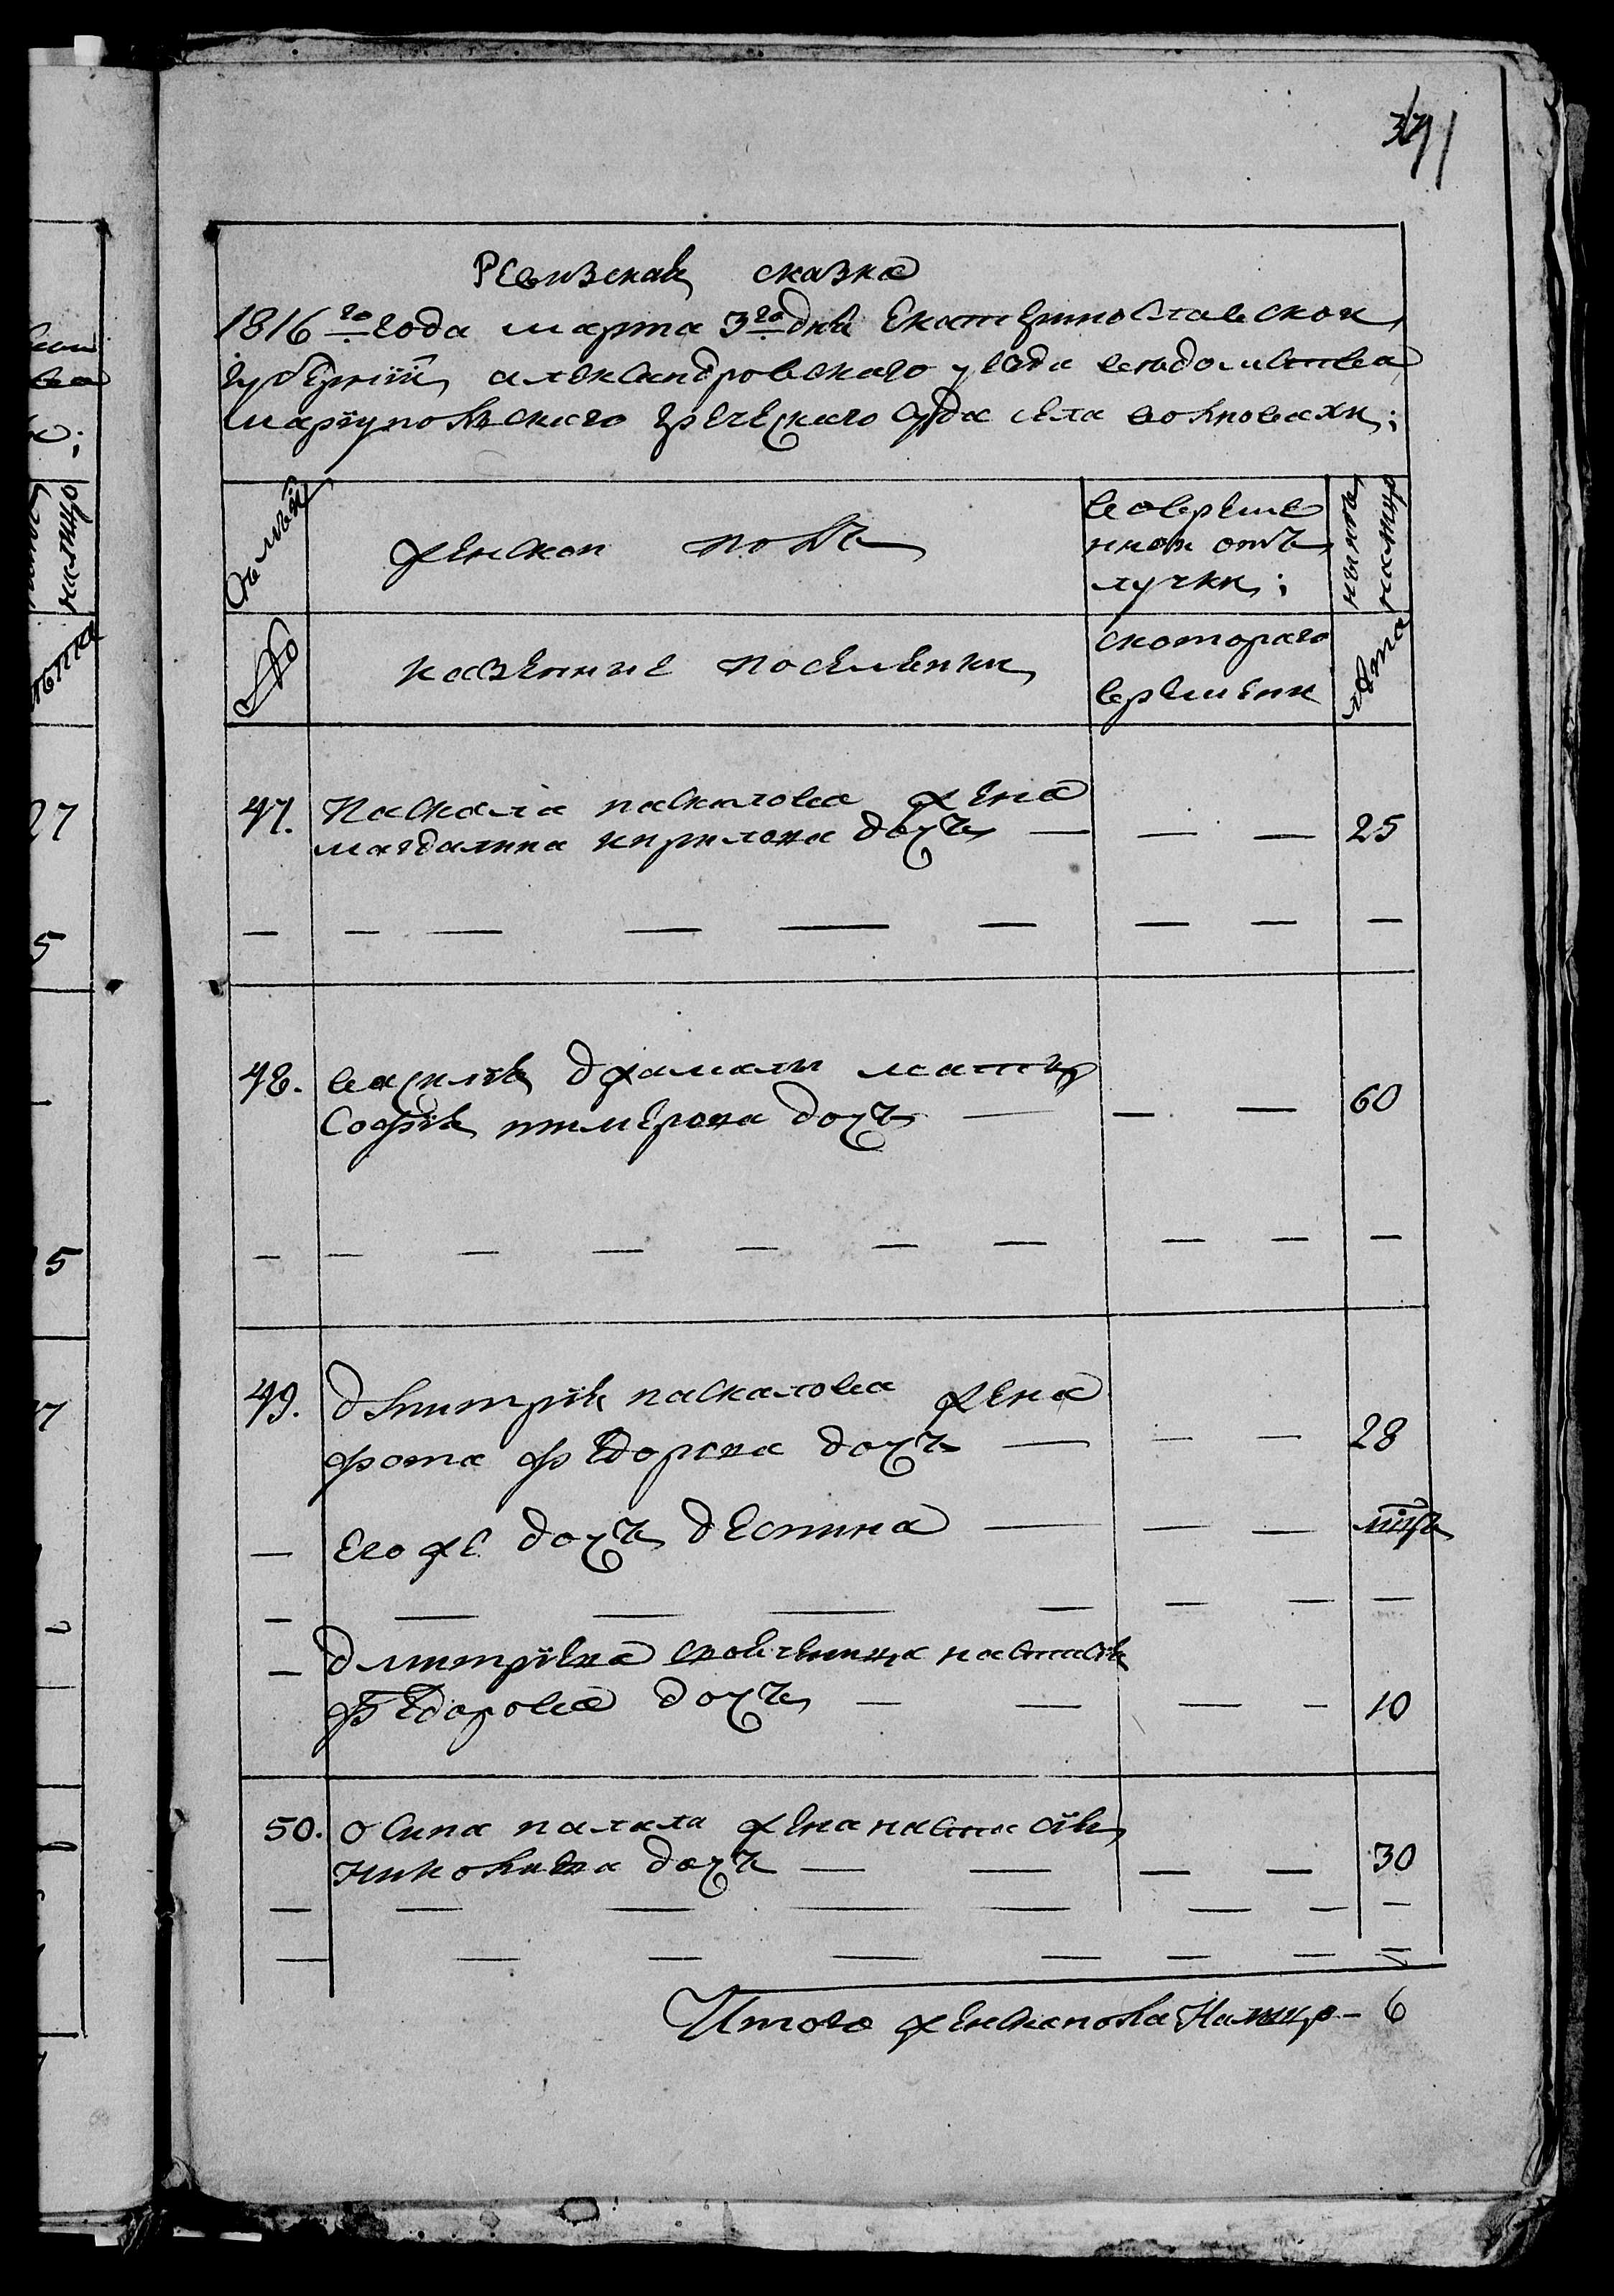 Ревизская сказка
1816го года марта 3го дня Екатеринославской
губернïи, александровского уезда ведомства
марïупольского греческаго суда села волновахи;
Семьи
женской полъ
во время
нной отъ
лучки;
ныне
налицо
№
казенные поселенки
скотораго
времени
лета
47. Паскала паскалова жена
магдалина кирилова дочъ — — — 25
48. василïя джамалы матъ
Софïя димерова дочъ — — — 60
49. дмитрïя паскалова жена
фота федорова дочъ — — — 28
— его же дочъ деспина — — —
— дмитрïева своячница настасïя
федорова дочъ — — — — 10
50. осипа палала жена настасïя
николаева дочъ — — — — 30
Итого женска пола Налицо — 6
27
5
5
налицо